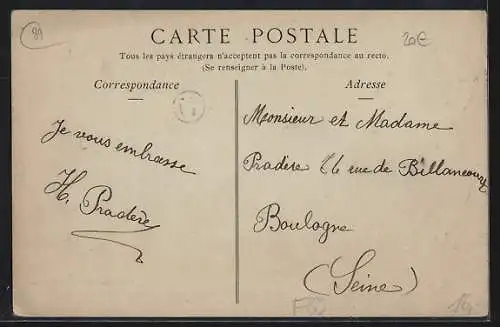 89
CARTE POSTALE
20€
Tous les pays étrangers n'acceptent pas la correspondance au recto.
(Se renseigner à la Poste).
Correspondance
Je vous embrasse
H. Pradère
Adresse
Monsieur et Madame
Pradère 16 rue de Billancourt
Boulogne
(Seine)